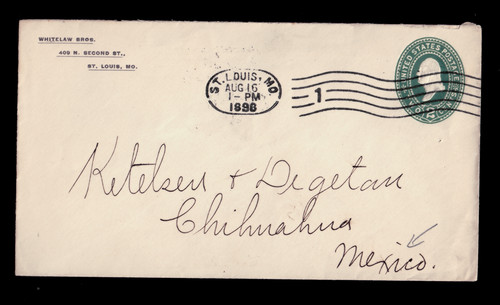 WHITELAW BROS.
409 N. SECOND ST.,
ST. LOUIS, MO.
ST. LOUIS, MO.
AUG 16
1-PM
1898
1
UNITED STATES POSTAGE
Ketelsen & Degetau
Chihuahua
Mexico.